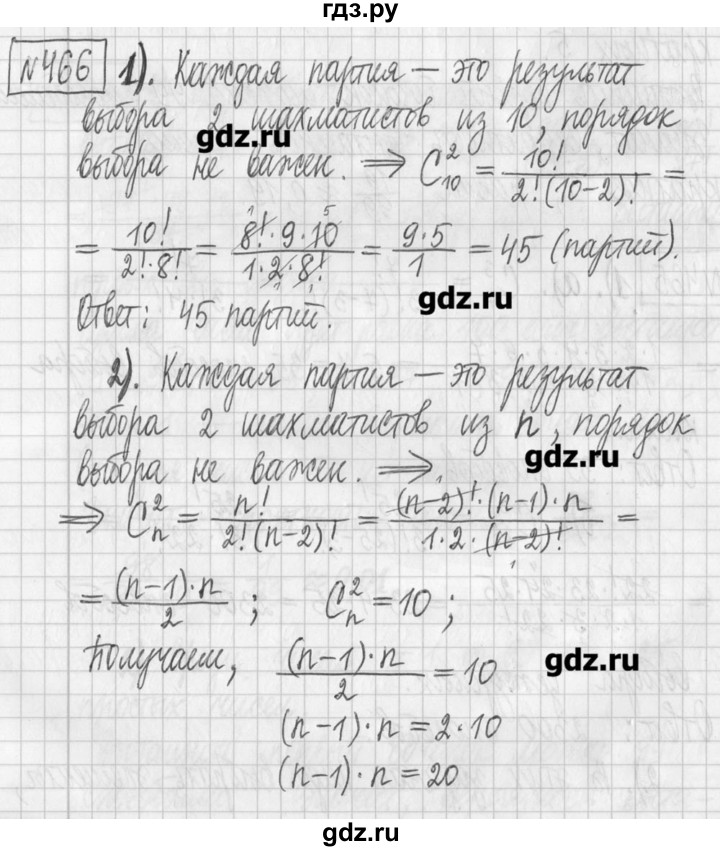 гдз.ру
№466 1). Каждая партия — это результат
выбора 2 шахматистов из 10, порядок
gdz.ru
выбора не важен. ⇒ C₁₀² = 10!/(2!(10-2)!) =
= 10!/(2!·8!) = (8!·9·10)/(1·2·8!) = (9·5)/1 = 45 (партий).
gdz.ru
Ответ: 45 партий.
2). Каждая партия — это результат
выбора 2 шахматистов из n, порядок
gdz.ru
выбора не важен. ⇒
⇒ Cₙ² = n!/(2!(n-2)!) = ((n-2)!·(n-1)·n)/(1·2·(n-2)!) =
= ((n-1)·n)/2 ; Cₙ² = 10 ;
Получаем, ((n-1)·n)/2 = 10
gdz.ru
(n-1)·n = 2·10
(n-1)·n = 20
gdz.ru